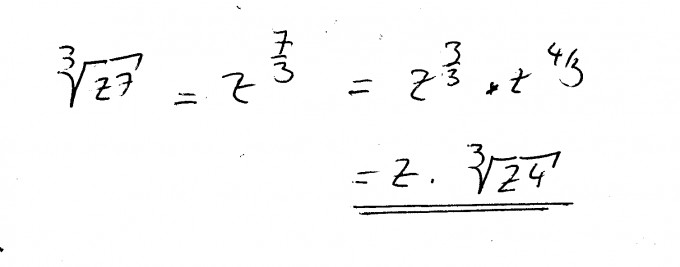 ∛z⁷ = z^(7/3) = z^(3/3) · z^(4/3)
= z · ∛z⁴